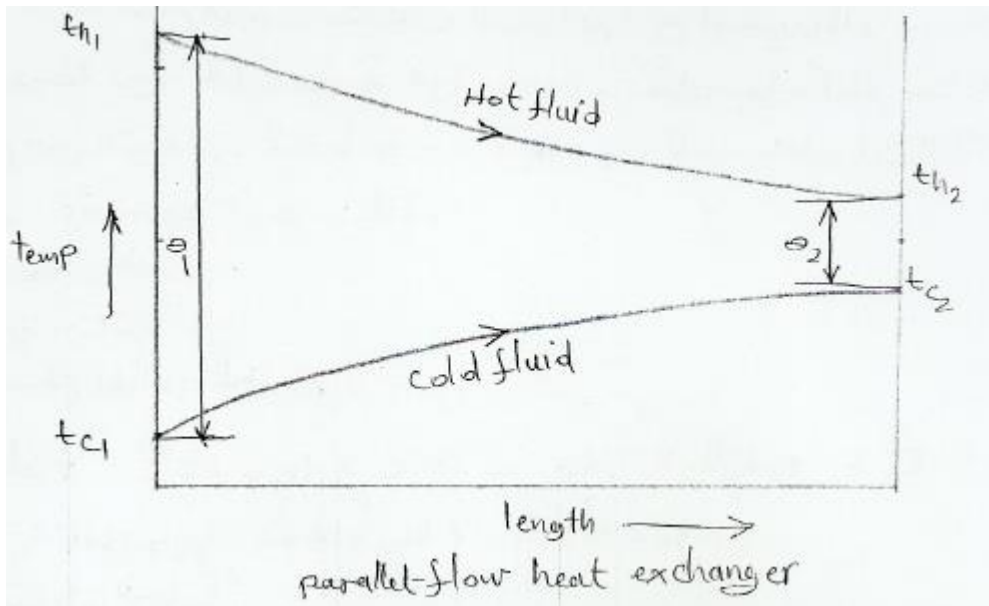 th1
Hot fluid
th2
temp
θ1
θ2
tc2
cold fluid
tc1
length
parallel-flow heat exchanger